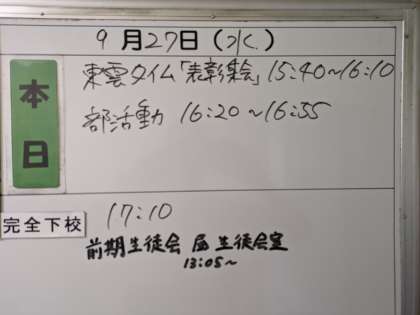 9月27日(水)
本日
東雲タイム「表彰集会」15:40〜16:10
部活動 16:20〜16:55
完全下校 17:10
前期生徒会 生徒会室
13:05〜